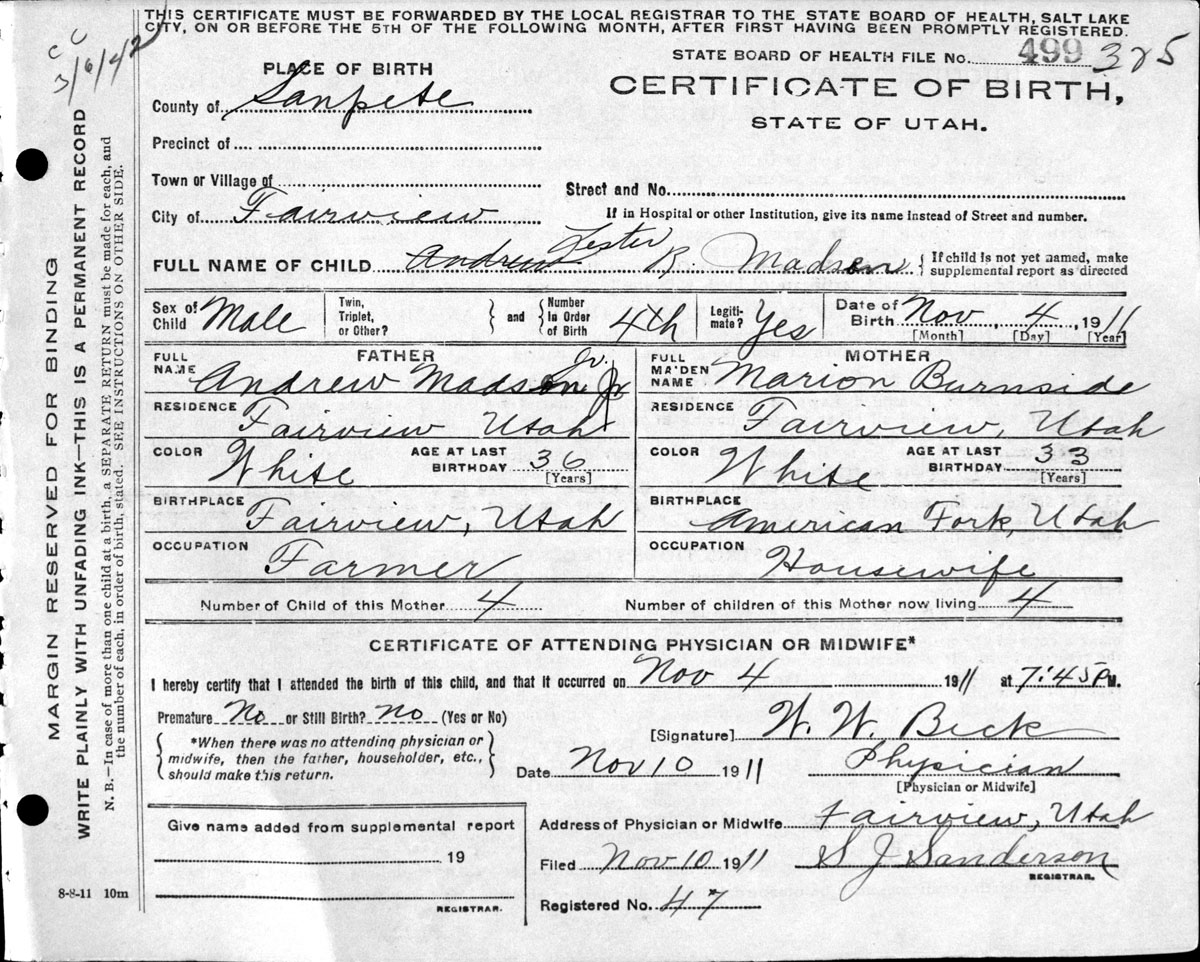 THIS CERTIFICATE MUST BE FORWARDED BY THE LOCAL REGISTRAR TO THE STATE BOARD OF HEALTH, SALT LAKE
CITY, ON OR BEFORE THE 5TH OF THE FOLLOWING MONTH, AFTER FIRST HAVING BEEN PROMPTLY REGISTERED.
CC
3/6/42
STATE BOARD OF HEALTH FILE No. 499 325
PLACE OF BIRTH
CERTIFICATE OF BIRTH,
STATE OF UTAH.
County of Sanpete
Precinct of
Town or Village of
Street and No.
City of Fairview
If in Hospital or other Institution, give its name instead of Street and number.
FULL NAME OF CHILD Andrew Lester R. Madsen { If child is not yet named, make supplemental report as directed
Sex of Child Male Twin, Triplet, or Other? } and { Number in Order of Birth 4th Legiti-mate? Yes Date of Birth Nov, 4, 1911
[Month] [Day] [Year]
FATHER
FULL NAME Andrew Madsen Jr. Jr
RESIDENCE Fairview Utah
COLOR White AGE AT LAST BIRTHDAY 36 [Years]
BIRTHPLACE Fairview, Utah
OCCUPATION Farmer
MOTHER
FULL MAIDEN NAME Marion Burnside
RESIDENCE Fairview, Utah
COLOR White AGE AT LAST BIRTHDAY 33 [Years]
BIRTHPLACE American Fork, Utah
OCCUPATION Housewife
Number of Child of this Mother 4 Number of children of this Mother now living 4
CERTIFICATE OF ATTENDING PHYSICIAN OR MIDWIFE*
I hereby certify that I attended the birth of this child, and that it occurred on Nov 4 1911 at 7:45 P M.
Premature No or Still Birth? No (Yes or No)
[Signature] W. W. Bick
{ *When there was no attending physician or
midwife, then the father, householder, etc.,
should make this return. }
Date Nov 10 1911 Physician
[Physician or Midwife]
Give name added from supplemental report
19
REGISTRAR.
Address of Physician or Midwife Fairview, Utah
Filed Nov 10 1911 S J Sanderson
REGISTRAR.
Registered No. 47
8-8-11 10m
MARGIN RESERVED FOR BINDING
WRITE PLAINLY WITH UNFADING INK—THIS IS A PERMANENT RECORD
N. B.—In case of more than one child at a birth, a SEPARATE RETURN must be made for each, and
the number of each, in order of birth, stated. SEE INSTRUCTIONS ON OTHER SIDE.